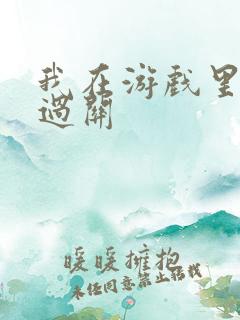 我在游戏里
過關
暖暖擁抱
未经同意禁止转载